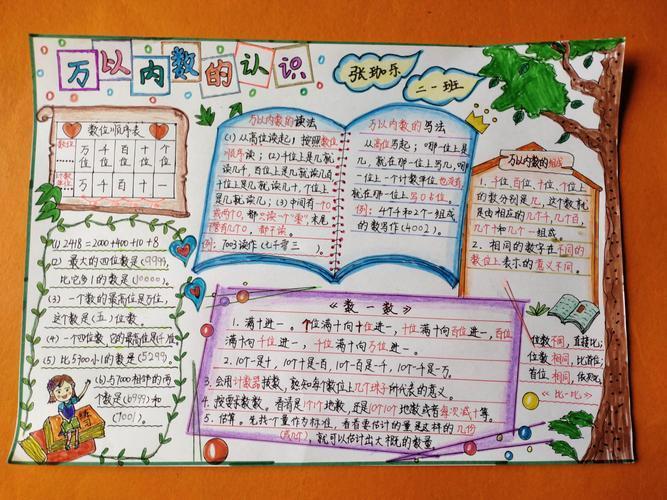 万以内数的认识
张珈乐
二一班
数位顺序表
数位
万位 千位 百位 十位 个位
计数单位
万 千 百 十 一
(1) 2418=2000+400+10+8
(2) 最大的四位数是(9999),
比它多1的数是(10000)。
(3) 一个数的最高位是万位,
这个数是(五)位数
(4) 一个四位数,它的最高位是千位
(5) 比5900小1的数是(5299).
(6) 与7000相邻的两
个数是(6999)和
(7001)。
万以内数的读法
(1) 从高位读起;按照数位
顺序读;(2) 千位上是几就
读几千,百位上是几就读几百
十位上是几,就读几十,个位上
是几就读几;(3) 中间有一个0
或两个0,都只读一个"零",末尾
不管有几个0,都不读.
例: 7003读作(七千零三).
万以内数的写法
从高位写起;哪一位上是
几,就在那一位上写几;哪
一位上一个计数单位也没有
就在那一位上写0占位。
例: 4个千和2个一组成
的数写作(4002).
万以内数的组成
1. 千位,百位,十位,个位上
的数分别是几,这个数就
是由相应的几个千,几个百,
几个十和几个一组成
2. 相同的数字在不同的
数位上表示的意义不同。
《数一数》
1. 满十进一。个位满十向十位进一,十位满十向百位进一,百位
满十向千位进一,千位满十向万位进一。
2. 10个一是十,10个十是一百,10个一百是一千,10个一千是一万。
3. 会用计数器拨数,能知每个数位上几个珠子所代表的意义。
4. 按要求数数,看清是1个1个地数,还是10个10个地数或者每次减十等。
5. 估算。先找个量作为标准,看看要估计的量是这样的几份
(或几个),就可以估计出大概的数量
位数不同,直接比;
位数相同,比首位;
首位相同,依次比
《比一比》